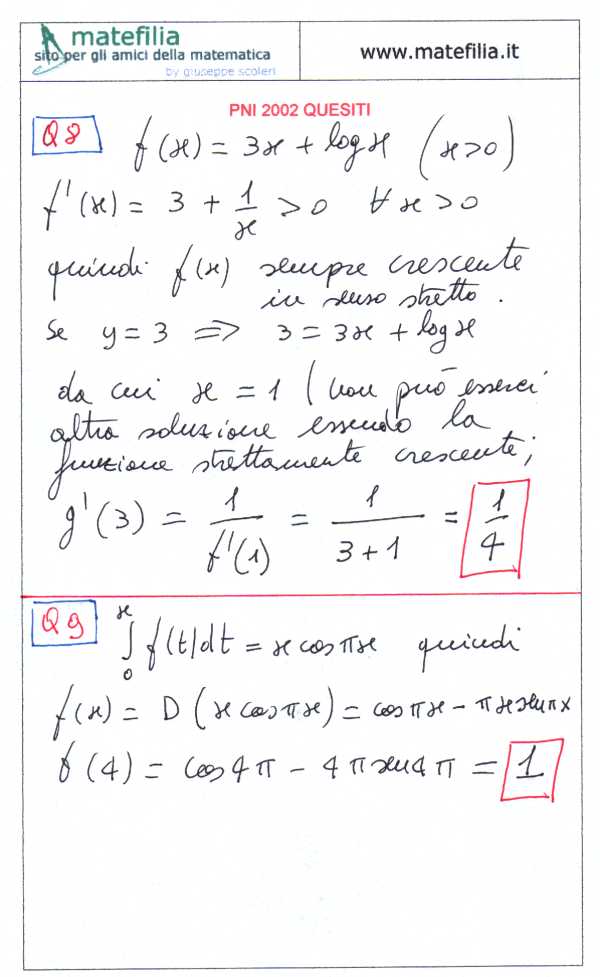 matefilia
sito per gli amici della matematica
by giuseppe scoleri
www.matefilia.it
PNI 2002 QUESITI
Q8 f(x) = 3x + log x (x>0)
f'(x) = 3 + 1/x > 0 ∀ x > 0
quindi f(x) sempre crescente
in senso stretto.
Se y = 3 ⇒ 3 = 3x + log x
da cui x = 1 (non può esserci
altra soluzione essendo la
funzione strettamente crescente;
g'(3) = 1/f'(1) = 1/(3+1) = 1/4
Q9 ∫₀ˣ f(t)dt = x cos πx quindi
f(x) = D (x cos πx) = cos πx - πx sen πx
f(4) = cos 4π - 4π sen 4π = 1